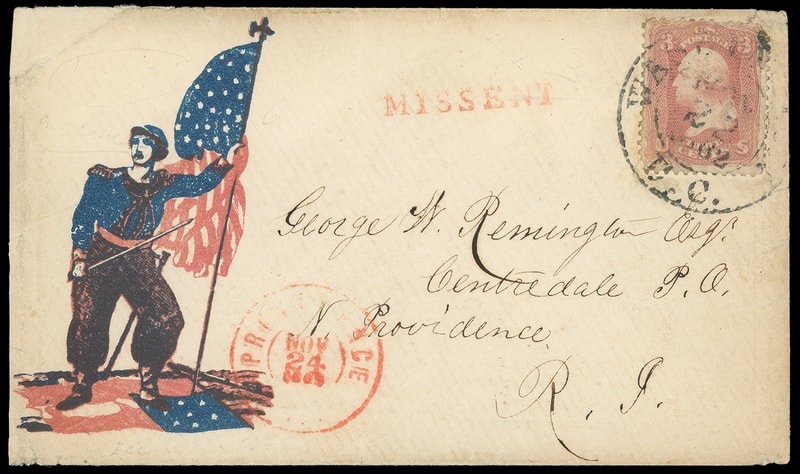 MISSENT
3 U.S. POSTAGE 3
WA
1862
D.C.
George W. Remington Esqr.
Centredale P.O.
N. Providence
R. I.
NOV
24